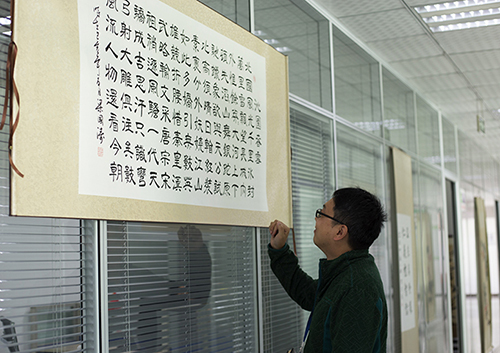 沁園春雪
北國風光千里冰封
萬里雪飄望長城內
外惟餘莽莽大河上下
頓失滔滔山舞銀蛇原
馳蠟象欲與天公試
比高須晴日看紅裝
素裹分外妖嬈江山
如此多嬌引無數英
雄競折腰惜秦皇漢
武略輸文采唐宗宋
祖稍遜風騷一代天
驕成吉思汗只識彎
弓射大雕俱往矣數
風流人物還看今朝